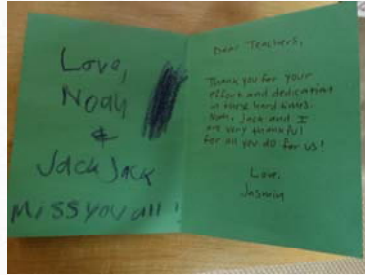 Love,
Noah
&
Jack Jack
Miss you all!
Dear Teachers,
Thank you for your
effort and dedication
in these hard times.
Noah, Jack and I
are very thankful
for all you do for us!
Love,
Jasmin